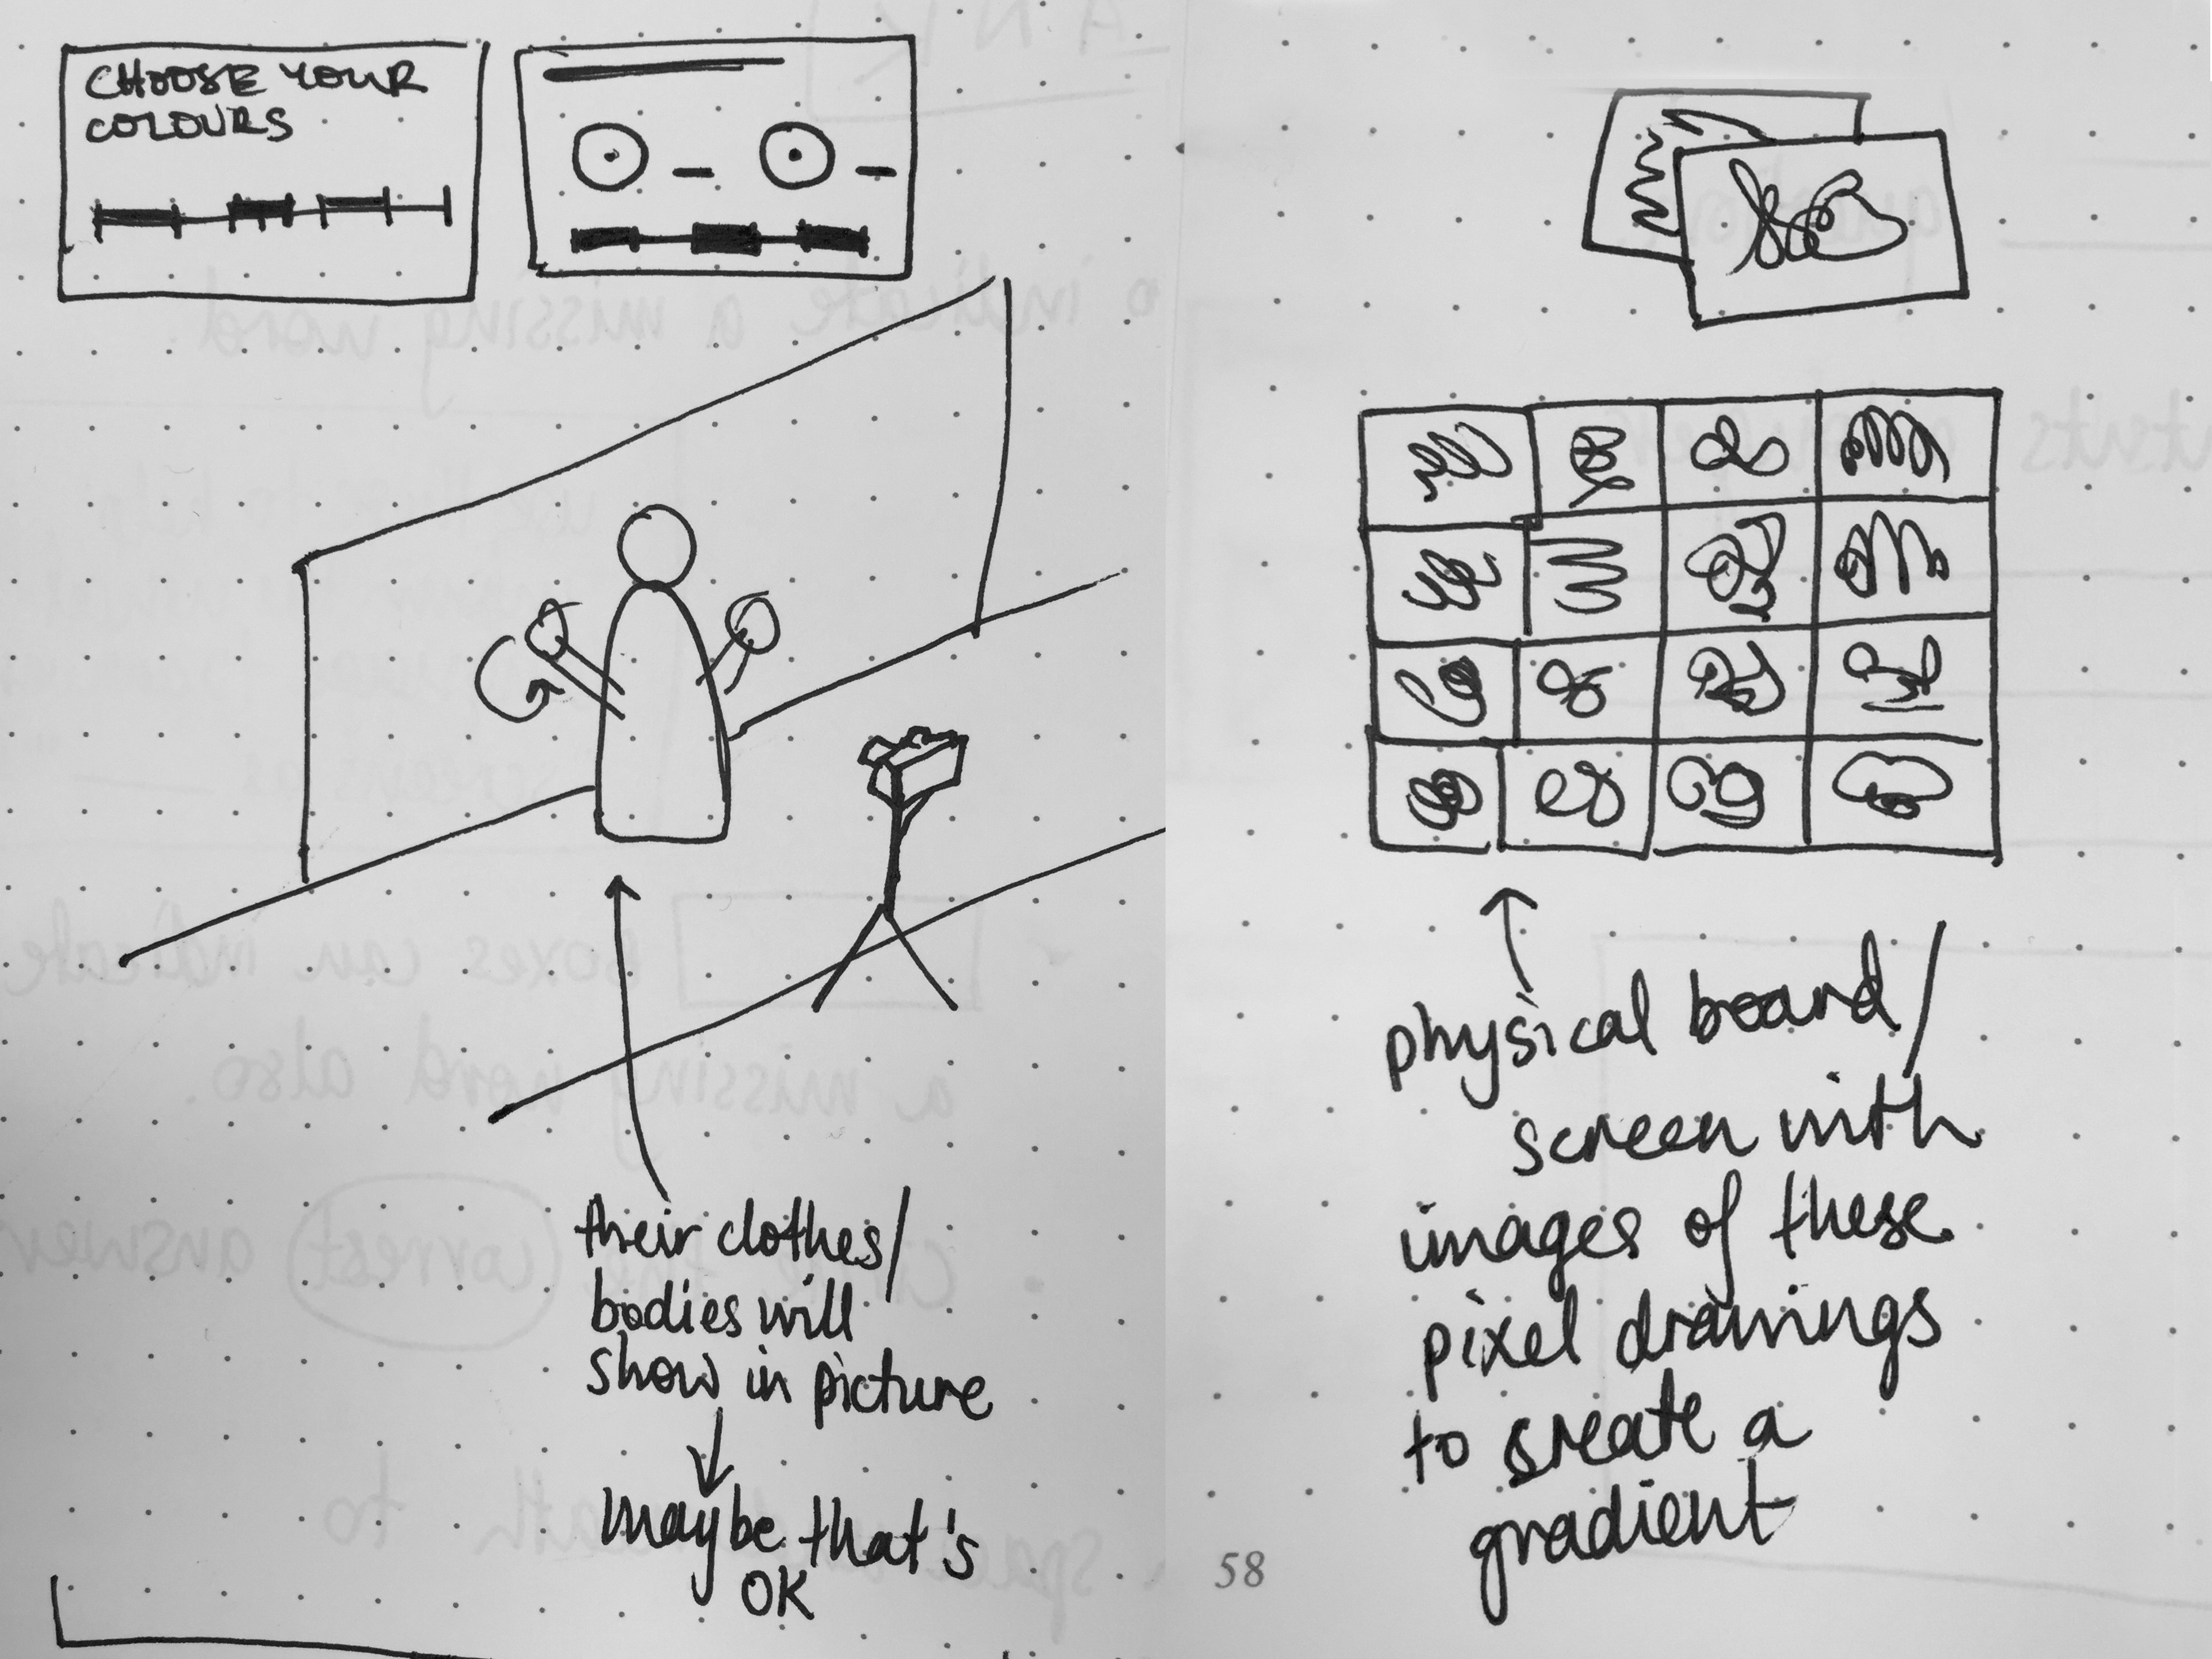 CHOOSE YOUR
COLOURS
their clothes/
bodies will
show in picture
maybe that's
OK
physical board/
screen with
images of these
pixel drawings
to create a
gradient
58